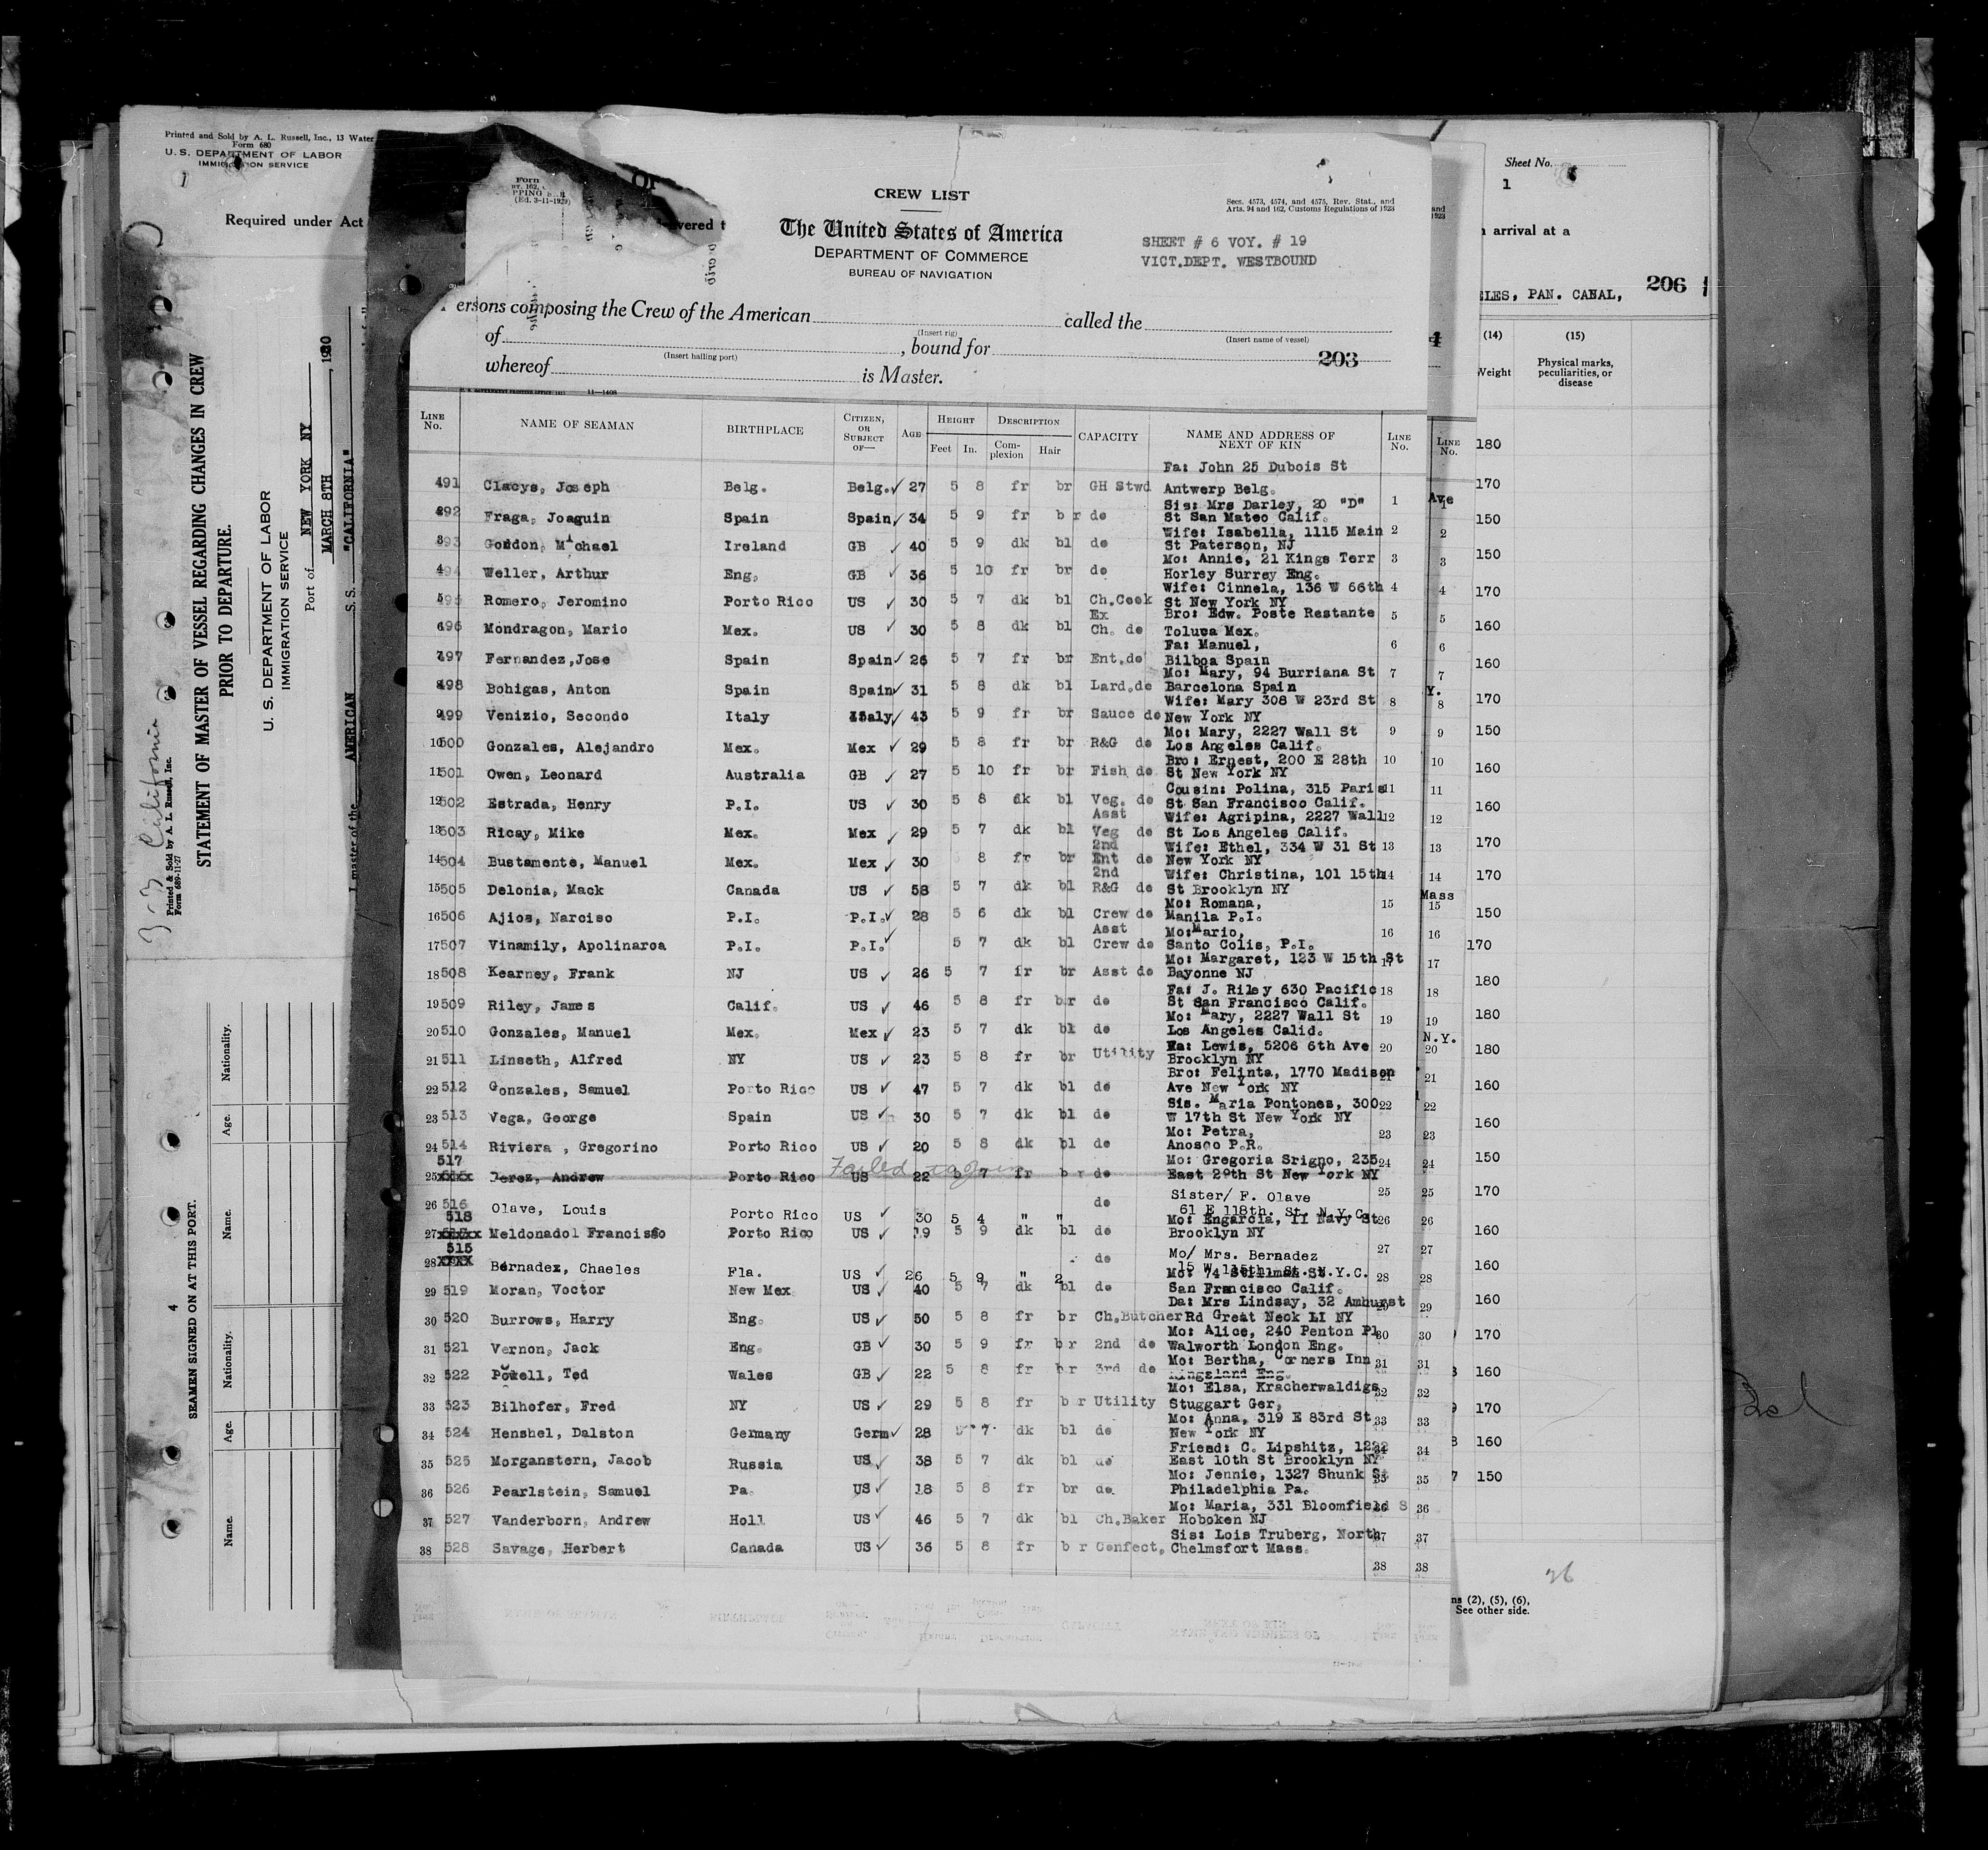 Printed and Sold by A. L. Russell, Inc., 13 Water
Form 680
U.S. DEPARTMENT OF LABOR
IMMIGRATION SERVICE
1
Required under Act
33 California
Printed & Sold by A. L. Russell, Inc.
Form 689-11-27
STATEMENT OF MASTER OF VESSEL REGARDING CHANGES IN CREW
PRIOR TO DEPARTURE.
U. S. DEPARTMENT OF LABOR
IMMIGRATION SERVICE
Port of NEW YORK NY
MARCH 8TH, 1930
I master of the AMERICAN S. S. "CALIFORNIA"
4
SEAMEN SIGNED ON AT THIS PORT.
Name. Age. Nationality. Name. Age. Nationality.
Form
PPING
(Ed. 3-11-1929)
Of
vered t
CREW LIST
The United States of America
DEPARTMENT OF COMMERCE
BUREAU OF NAVIGATION
Secs. 4573, 4574, and 4575, Rev. Stat., and
Arts. 94 and 162, Customs Regulations of 1923
SHEET # 6 VOY. # 19
VICT.DEPT. WESTBOUND
ersons composing the Crew of the American called the
(Insert rig) (Insert name of vessel)
of , bound for 203
(Insert hailing port)
whereof is Master.
11—1408
LINE No. NAME OF SEAMAN BIRTHPLACE CITIZEN, OR SUBJECT OF— AGE HEIGHT Feet In. DESCRIPTION Complexion Hair CAPACITY NAME AND ADDRESS OF NEXT OF KIN LINE No.
Fa: John 25 Dubois St
491 Claeys, Joseph Belg. Belg. 27 5 8 fr br GH Stwd Antwerp Belg. 1
Sis: Mrs Darley, 20 "D"
492 Fraga, Joaguin Spain Spain 34 5 9 fr br do St San Mateo Calif. 2
Wife: Isabella, 1115 Main
493 Gordon, Michael Ireland GB 40 5 9 dk bl do St Paterson, NJ 3
Mo: Annie, 21 Kings Terr
494 Weller, Arthur Eng. GB 36 5 10 fr br do Horley Surrey Eng. 4
Wife: Cinnela, 136 W 66th
495 Romero, Jeromino Porto Rico US 30 5 7 dk bl Ch.Cook St New York NY 5
Ex Bro: Edw. Poste Restante
496 Mondragon, Mario Mex. US 30 5 8 dk bl Ch. do Toluca Mex. 6
Fa: Manuel,
497 Fernandez,Jose Spain Spain 26 5 7 fr br Ent.do Bilboa Spain 7
Mo: Mary, 94 Burriana St
498 Bohigas, Anton Spain Spain 31 5 8 dk bl Lard.do Barcelona Spain 8
Wife: Mary 308 W 23rd St
499 Venizio, Secondo Italy Italy 43 5 9 fr br Sauce do New York NY 9
Mo: Mary, 2227 Wall St
500 Gonzales, Alejandro Mex. Mex 29 5 8 fr br R&G do Los Angeles Calif. 10
Bro: Ernest, 200 E 28th
501 Owen, Leonard Australia GB 27 5 10 fr br Fish do St New York NY 11
Cousin: Polina, 315 Paris
502 Estrada, Henry P.I. US 30 5 8 dk bl Veg. do St San Francisco Calif. 12
Asst Wife: Agripina, 2227 Wall
503 Ricay, Mike Mex. Mex 29 5 7 dk bl Veg do St Los Angeles Calif. 13
2nd Wife: Ethel, 334 W 31 St
504 Bustamente, Manuel Mex. Mex 30 8 fr br Ent do New York NY 14
2nd Wife: Christina, 101 15th
505 Delonia, Mack Canada US 58 5 7 dk bl R&G do St Brooklyn NY 15
Mo: Romana,
506 Ajios, Narciso P.I. P.I. 28 5 6 dk bl Crew do Manila P.I. 16
Asst Mo:Mario,
507 Vinamily, Apolinaroa P.I. P.I. 5 7 dk bl Crew do Santo Colis, P.I. 17
Mo: Margaret, 123 W 15th St
508 Kearney, Frank NJ US 26 5 7 fr br Asst do Bayonne NJ 18
Fa: J. Riley 630 Pacific
509 Riley, James Calif. US 46 5 8 fr br do St San Francisco Calif. 19
Mo: Mary, 2227 Wall St
510 Gonzales, Manuel Mex. Mex 23 5 7 dk bl do Los Angeles Calid. 20
Fa: Lewis, 5206 6th Ave
511 Linseth, Alfred NY US 23 5 8 fr br Utility Brocklyn NY 21
Bro: Felinta, 1770 Madison
512 Gonzales, Samuel Porto Rico US 47 5 7 dk bl do Ave New York NY 22
Sis. Maria Pontones, 300
513 Vega, George Spain US 30 5 7 dk bl do W 17th St New York NY 23
Mo: Petra,
514 Riviera , Gregorino Porto Rico US 20 5 8 dk bl do Anosco P.R. 24
517 Failed to join Mo: Gregoria Srigno, 235
25 xxxx Jerez, Andrew Porto Rico US 22 5 7 fr br do East 29th St New York NY 25
Sister/ F. Olave
26 516 Olave, Louis Porto Rico US 30 5 4 " " do 61 E 118th. St. N.Y.C.
518 Mo: Engarcia, II Navy St 26
27 xxxxx Meldonadol Francisso Porto Rico US 19 5 9 dk bl do Brooklyn NY 27
515 Mo/ Mrs. Bernadez
28 xxxx Bernadez, Chaeles Fla. US 26 5 9 " 2 do 15 W 115th. St. N.Y.C.
Mo: 74 Stillman St 28
29 519 Moran, Voctor New Mex US 40 5 7 dk bl do San Francisco Calif.
Da: Mrs Lindsay, 32 Amhurst 29
30 520 Burrows, Harry Eng. US 50 5 8 fr br Ch.Butcher Rd Great Neck LI NY
Mo: Alice, 240 Penton Pl 30
31 521 Vernon, Jack Eng. GB 30 5 9 fr br 2nd do Walworth London Eng.
Mo: Bertha, Corners Inn 31
32 522 Powell, Ted Wales GB 22 5 8 fr br 3rd do Kingsland Eng.
Mo: Elsa, Kracherwaldigs 32
33 523 Bilhofer, Fred NY US 29 5 8 fr br Utility Stuggart Ger,
Mo: Anna, 319 E 83rd St 33
34 524 Henshel, Dalston Germany Germ 28 5 7 dk bl do New York NY
Friend: C. Lipshitz, 1222 34
35 525 Morganstern, Jacob Russia US 38 5 7 dk bl do East 10th St Brooklyn NY
Mo: Jennie, 1327 Shunk St 35
36 526 Pearlstein, Samuel Pa. US 18 5 8 fr br do Philadelphia Pa.
Mo: Maria, 331 Bloomfield S 36
37 527 Vanderborn, Andrew Holl US 46 5 7 dk bl Ch.Baker Hoboken NJ
Sis: Lois Truberg, North 37
38 528 Savage, Herbert Canada US 36 5 8 fr br Confect, Chelmsfort Mass.
38
LINE No.
Ave
1
2
3
4
5
6
7
Y.
8
9
10
11
12
13
14
Mass
15
16
17
18
19
N.Y.
20
21
22
23
24
25
26
27
28
29
30
31
32
33
34
35
36
37
38
Sheet No.
1
n arrival at a
206
ELES, PAN. CANAL,
(14) (15)
Weight Physical marks, peculiarities, or disease
180
170
150
150
170
160
160
170
150
160
160
170
170
150
170
180
180
180
160
160
150
170
160
160
160
170
160
170
160
150
36
ns (2), (5), (6),
See other side.